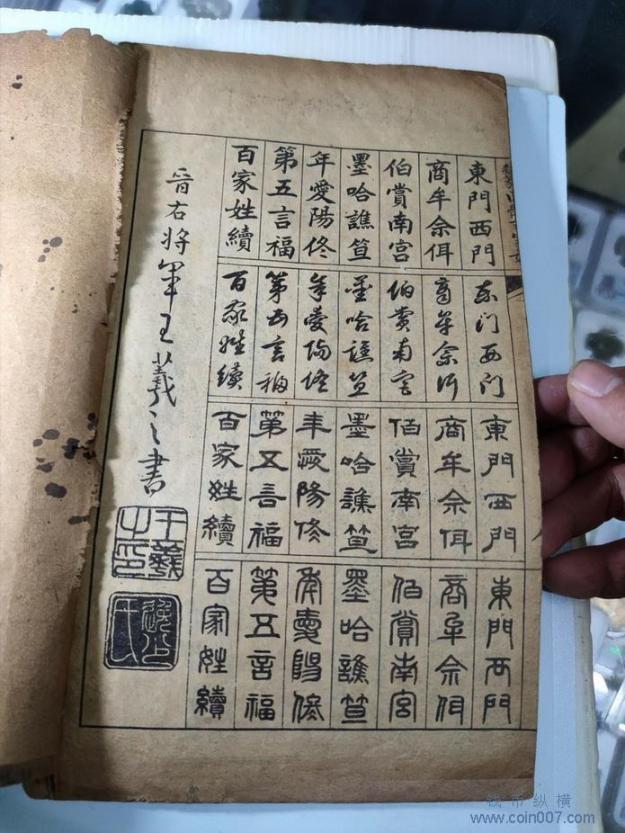 東門西門
商牟佘佴
伯賞南宮
墨哈譙笪
年愛陽佟
第五言福
百家姓續
東門西門
商牟佘佴
伯賞南宮
墨哈譙笪
年愛陽佟
第五言福
百家姓續
東門西門
商牟佘佴
伯賞南宮
墨哈譙笪
年愛陽佟
第五言福
百家姓續
東門西門
商牟佘佴
伯賞南宮
墨哈譙笪
年愛陽佟
第五言福
百家姓續
晉右將軍王羲之書
王羲之印
钱币纵横
www.coin007.com